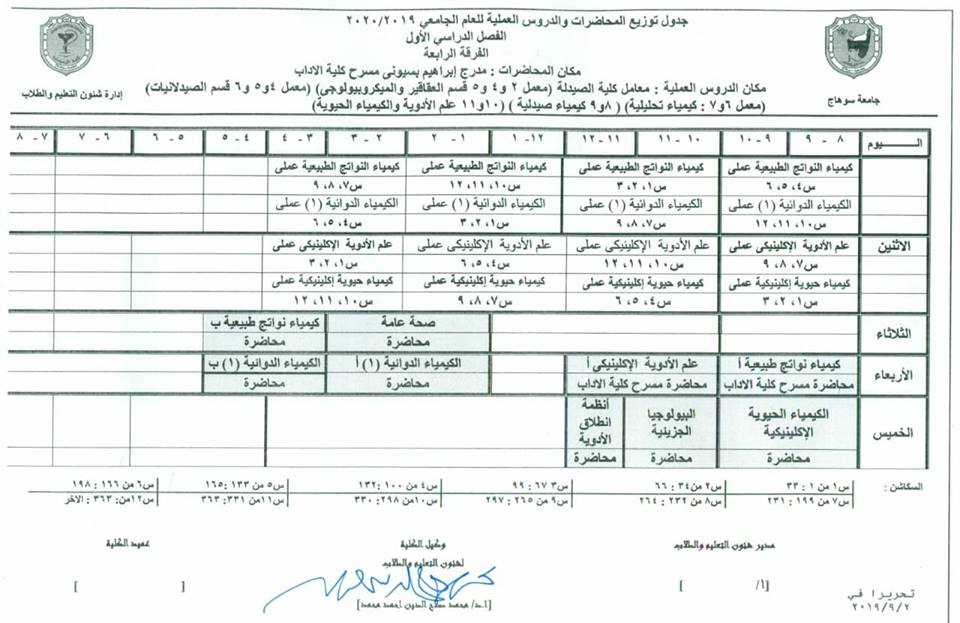 جدول توزيع المحاضرات والدروس العملية للعام الجامعي ٢٠٢٠/٢٠١٩
الفصل الدراسي الأول
الفرقة الرابعة
مكان المحاضرات : مدرج إبراهيم بسيونى مسرح كلية الاداب
مكان الدروس العملية : معامل كلية الصيدلة (معمل ٢ و٤ و٥ قسم العقاقير والميكروبيولوجى) (معمل ٤ و٥ و٦ قسم الصيدلانيات)
(معمل ٦ و٧ : كيمياء تحليلية) (٨ و٩ كيمياء صيدلية) (١٠ و١١ علم الأدوية والكيمياء الحيوية)
جامعة سوهاج
إدارة شئون التعليم والطلاب
اليوم ٨ - ٩ ٩ - ١٠ ١٠ - ١١ ١١ - ١٢ ١٢ - ١ ١ - ٢ ٢ - ٣ ٣ - ٤ ٤ - ٥ ٥ - ٦ ٦ - ٧ ٧ - ٨
كيمياء النواتج الطبيعية عملى كيمياء النواتج الطبيعية عملى كيمياء النواتج الطبيعية عملى كيمياء النواتج الطبيعية عملى
س٤، ٥، ٦ س١، ٢، ٣ س١٠، ١١، ١٢ س٧، ٨، ٩
الكيمياء الدوائية (١) عملى الكيمياء الدوائية (١) عملى الكيمياء الدوائية (١) عملى الكيمياء الدوائية (١) عملى
س١٠، ١١، ١٢ س٧، ٨، ٩ س١، ٢، ٣ س٤، ٥، ٦
الاثنين علم الأدوية الإكلينيكى عملى علم الأدوية الإكلينيكى عملى علم الأدوية الإكلينيكى عملى علم الأدوية الإكلينيكى عملى
س٧، ٨، ٩ س١٠، ١١، ١٢ س٤، ٥، ٦ س١، ٢، ٣
كيمياء حيوية إكلينيكية عملى كيمياء حيوية إكلينيكية عملى كيمياء حيوية إكلينيكية عملى كيمياء حيوية إكلينيكية عملى
س١، ٢، ٣ س٤، ٥، ٦ س٧، ٨، ٩ س١٠، ١١، ١٢
الثلاثاء صحة عامة كيمياء نواتج طبيعية ب
محاضرة محاضرة
الأربعاء كيمياء نواتج طبيعية أ علم الأدوية الإكلينيكى أ الكيمياء الدوائية (١) أ الكيمياء الدوائية (١) ب
محاضرة مسرح كلية الاداب محاضرة مسرح كلية الاداب محاضرة محاضرة
الخميس الكيمياء الحيوية الإكلينيكية البيولوجيا الجزيئية أنظمة انطلاق الأدوية
محاضرة محاضرة محاضرة
السكاشن : س١ من ١ : ٣٣ س٢ من ٣٤ : ٦٦ س٣ ٦٧ : ٩٩ س٤ من ١٠٠ : ١٣٢ س٥ من ١٣٣ : ١٦٥ س٦ من ١٦٦ : ١٩٨
س٧ من ١٩٩ : ٢٣١ س٨ من ٢٣٢ : ٢٦٤ س٩ من ٢٦٥ : ٢٩٧ س١٠من ٢٩٨ : ٣٣٠ س١١من ٣٣١ : ٣٦٣ س١٢من: ٣٦٣: الاخر
مدير شئون التعليم والطلاب وكيل الكلية عميد الكلية
لشئون التعليم والطلاب
[ /١] [ ]
[ا.د/ محمد صلاح الدين احمد محمد]
تحريرا في
٢٠١٩/٩/٢